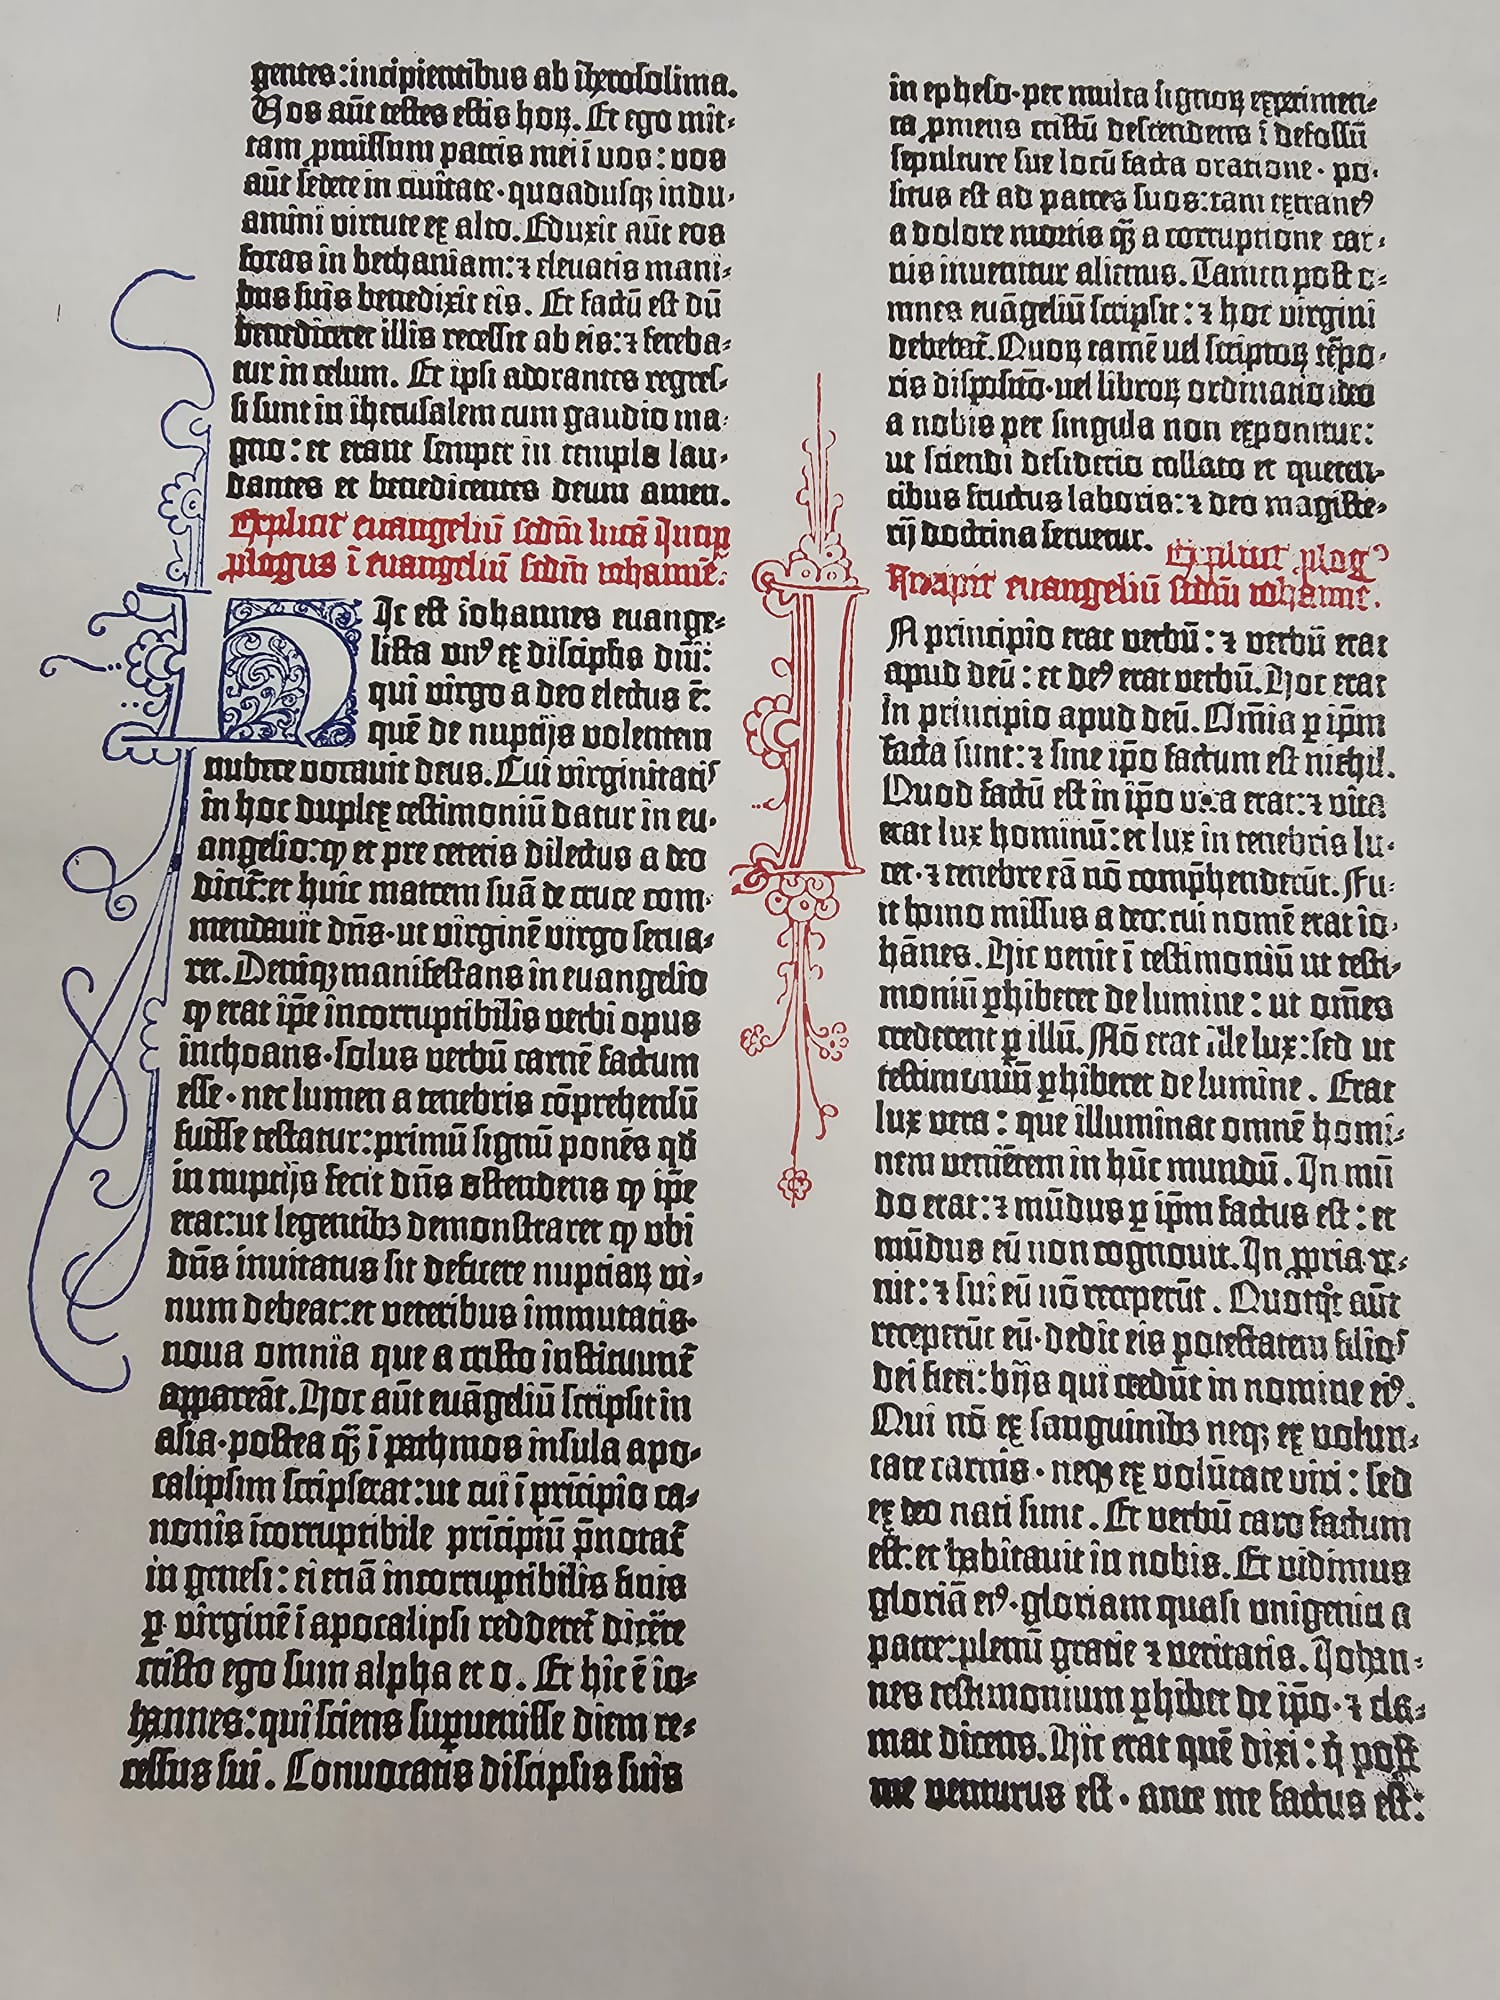 gentes:incipientibus ab iherosolima.
Vos aūt testes estis hoꝝ. Et ego mit⸗
tam ꝓmissum patris mei ī vos: vos
aūt sedete in civitate·quoadusqꝫ indu⸗
amini virtute ex alto. Eduxit aūt eos
foras in bethaniam:⁊ elevatis mani⸗
bus suis benedixit eis. Et factū est dū
benediceret illis recessit ab eis:⁊ fereba⸗
tur in celum. Et ipsi adorantes regres⸗
si sunt in iherusalem cum gaudio ma⸗
gno: et erant semper in templo lau⸗
dantes et benedicentes deum amen.
Explicit euangeliū scdm̄ lucā Incip̄
ꝓlogus ī euangeliū scdm̄ iohannē.
HIc est iohannes euange⸗
lista vnꝰ ex discipulis dn̄i:
qui virgo a deo electus ē:
quē de nuptijs volentem
nubere vocavit deus. Cui virginitatis
in hoc duplex testimoniū datur in eu⸗
angelio:ꝙ et pre ceteris dilectus a deo
dicit̄:et huic matrem suā de cruce com⸗
mendauit dn̄s·ut virginē virgo serua⸗
ret. Deniqꝫ manifestans in euangelio
ꝙ erat ip̄e incorruptibilis verbi opus
inchoans·solus verbū carnē factum
esse·nec lumen a tenebris cōprehensū
fuisse testatur:primū signū ponēs qd̄
in nuptijs fecit dn̄s ostendens ꝙ ip̄e
erat:ut legentibꝫ demonstraret ꝙ vbi
dn̄s inuitatus sit deficere nuptiaꝝ vi⸗
num debeat:et veteribus immutatis·
noua omnia que a cristo instituunt̄
appareāt. Hoc aūt euāgeliū scripsit in
asia·postea qꝫ̄ ī pathmos insula apo⸗
calipsim scripserat:ut cui ī principio ca⸗
nonis īcorruptibile principiū p̄notat̄
in genesi: ei etiā incorruptibilis finis
ꝑ virginē ī apocalipsi redderet̄ dicēte
cristo ego sum alpha et o. Et hic ē io⸗
hannes:qui sciens supuenisse diem re⸗
cessus sui. Conuocatis discipulis suis
in epheso·per multa signoꝝ experimen⸗
ta ꝓmens cristū descendens ī defossū
sepulture sue locū facta oratione·po⸗
situs est ad patres suos:tam extraneꝰ
a dolore mortis qꝫ̄ a corruptione car⸗
nis inuenitur alienus. Tamen post o⸗
mnes euāgeliū scripsit: ⁊ hoc virgini
debebat̄. Quoꝝ tamē vel scriptoꝝ tēpo⸗
ris dispositio·vel libroꝝ ordinatio ideo
a nobis per singula non exponitur:
ut sciendi desiderio collato et queren⸗
tibus fructus laboris:⁊ deo magiste⸗
rij doctrina seruetur. Explicit ꝓlogꝰ
Incipit euangeliū scdm̄ iohannē.
IN principio erat verbū: ⁊ verbū erat
apud deū: et deꝰ erat verbū. Hoc erat
In principio apud deū. Om̄ia ꝑ ip̄m
facta sunt:⁊ sine ip̄o factum est nichil.
Quod factū est in ip̄o vita erat:⁊ vita
erat lux hominū:et lux in tenebris lu⸗
cet·⁊ tenebre eā nō comp̄henderūt. Fu⸗
it homo missus a deo:cui nomē erat io⸗
hānes. Hic venit ī testimoniū ut testi⸗
moniū ꝑhiberet de lumine: ut om̄es
crederent ꝑ illū. Nō erat ille lux:sed ut
testimoniū ꝑhiberet de lumine. Erat
lux vera: que illuminat omnē homi⸗
nem venientem in hūc mundū. In mū
do erat:⁊ mūdus ꝑ ip̄m factus est: et
mūdus eū non cognouit. In ꝓpria ve⸗
nit:⁊ sui eū nō receperūt. Quotqͦt aūt
receperūt eū·dedit eis potestatem filios
dei fieri:hijs qui credūt in nomine eiꝰ.
Qui nō ex sanguinibꝫ neqꝫ ex volun⸗
tate carnis·neqꝫ ex volūtate viri: sed
ex deo nati sunt. Et verbū caro factum
est:et habitauit in nobis. Et vidimus
gloriā eiꝰ·gloriam quasi unigeniti a
patre:plenū gratie ⁊ veritatis. Johan⸗
nes testimonium ꝑhibet de ip̄o·⁊ cla⸗
mat dicens. Hic erat quē dixi: qͥ post
me venturus est·ante me factus est: